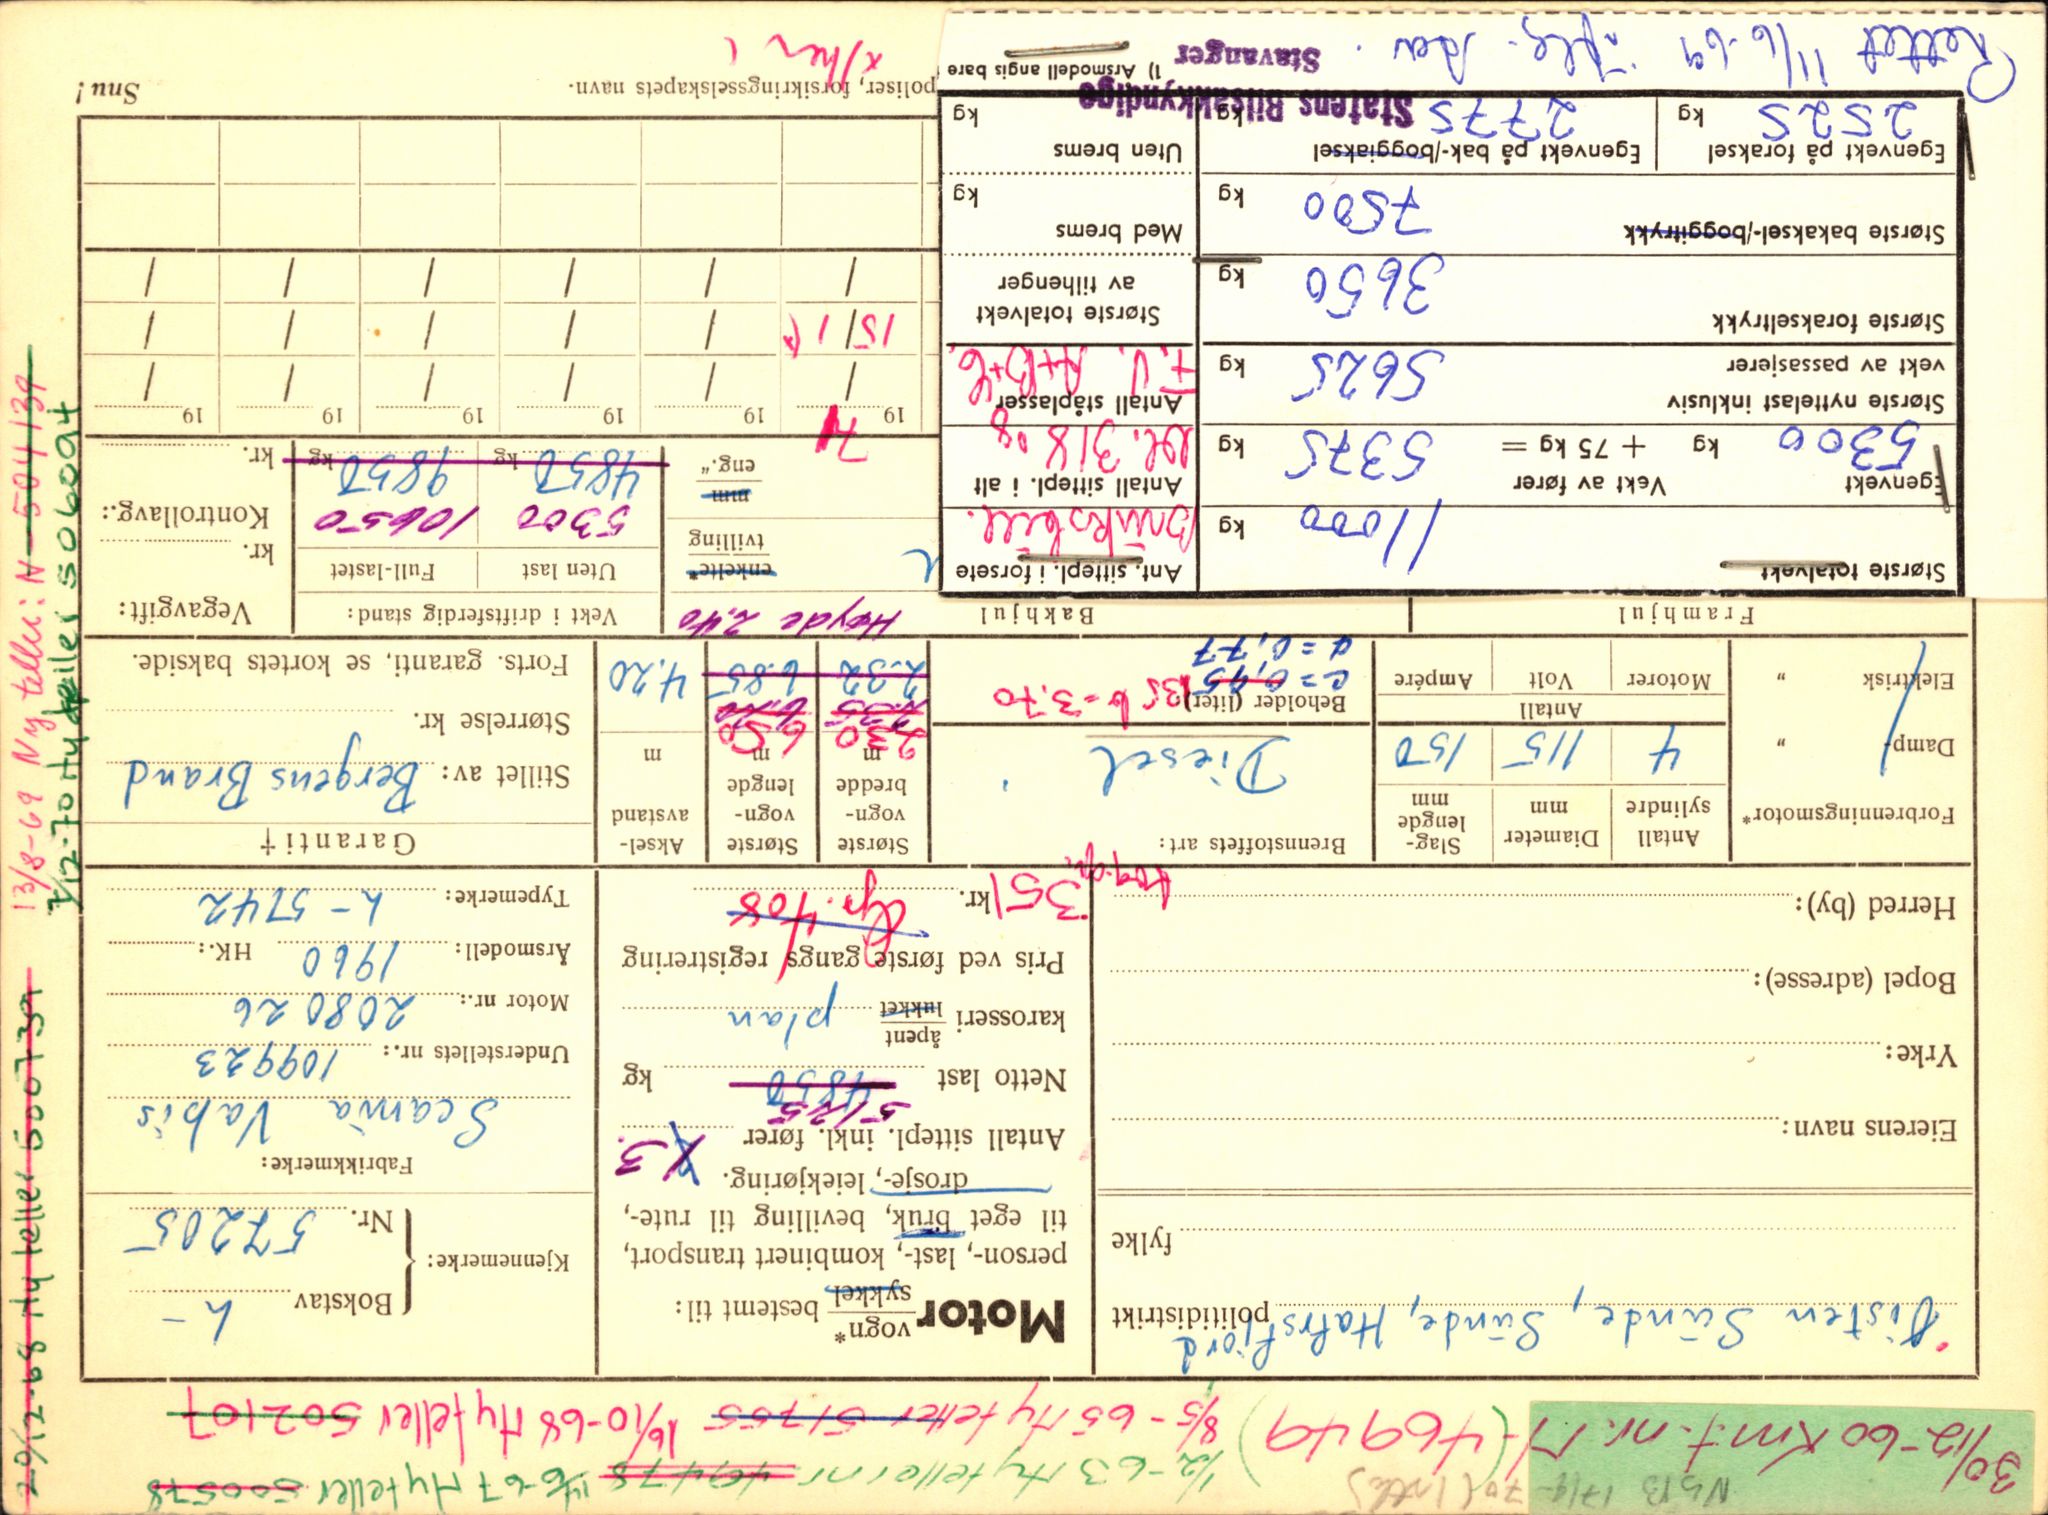 30/12-60 Km.t. nr. N-(46949)
1/2-63 Ny teller nr. 49478 1/6-67 Ny teller 500578
8/5-65 Ny teller 51755 16/10-68 Ny teller 502107
29/12-68 Ny teller 500739
13/8-69 Ny teller: N-504139
1/12-70 Ny teller 506094
Øisten Sunde, Sunde, Hafrsfjord
politidistrikt
fylke
Eierens navn:
Yrke:
Bopel (adresse):
Herred (by):
Motor vogn* sykkel bestemt til:
person-, last-, kombinert transport,
til eget bruk, bevilling til rute-,
drosje-, leiekjøring.
Antall sittepl. inkl. fører 3.
5125
Netto last 4850 kg
åpent
lukket
karosseri plan
Pris ved første gangs registrering
kr. 351
Gr. 408
Kjennemerke:
Bokstav L-
Nr. 57205
Fabrikkmerke:
Scania Vabis
Understellets nr.: 109923
Motor nr.: 208026
Årsmodell: 1960 HK.:
Typemerke: L-5742
Forbrenningsmotor*
Damp- "
Elektrisk "
Antall sylindre 4
Diameter mm 115
Slag-lengde mm 150
Antall
Motorer Volt Ampére
Brennstoffets art:
Diesel
Beholder (liter)
c = 0,95 135 b = 3.70
a = 0,77
Største vogn-bredde m
2.30
2.35
2.32
Største vogn-lengde m
6.50
6.85
Aksel-avstand m
4.20
Høyde 2,40
Garanti †
Stillet av: Bergens Brand
Størrelse kr.
Forts. garanti, se kortets bakside.
Framhjul
Bakhjul
enkelte*
tvilling
mm
eng."
Vekt i driftsferdig stand:
Uten last Full-lastet
5300 10650
4850 kg 9850 kg
Vegavgift:
kr.
Kontrollavg.:
kr.
1971 19 19 19 19 19
15/1 x)
Største totalvekt 11000 kg
Egenvekt 5300 kg Vekt av fører + 75 kg = 5375 kg
Største nyttelast inklusiv vekt av passasjerer 5625 kg
Største forakseltrykk 3650 kg
Største bakaksel-/boggitrykk 7500 kg
Egenvekt på foraksel 2525 kg
Egenvekt på bak-/boggiaksel 2775 kg
Ant. sittepl. i forsete
Antall sittepl. i alt
Antall ståplasser
Bruksbell.
bl. 318 og
F.V. A+B+C.
Største totalvekt av tilhenger
Med brems kg
Uten brems kg
Statens Bilsakkyndige
Stavanger
Rettet 11/6-69
1) Årsmodell angis bare
poliser, forsikringsselskapets navn.
Snu!